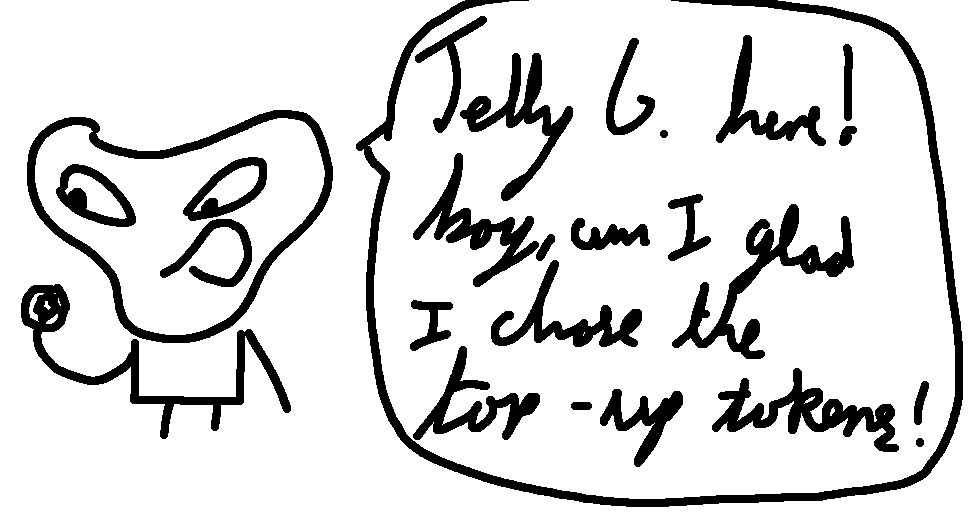 Jelly G. here!
boy, am I glad
I chose the
top-up tokens!